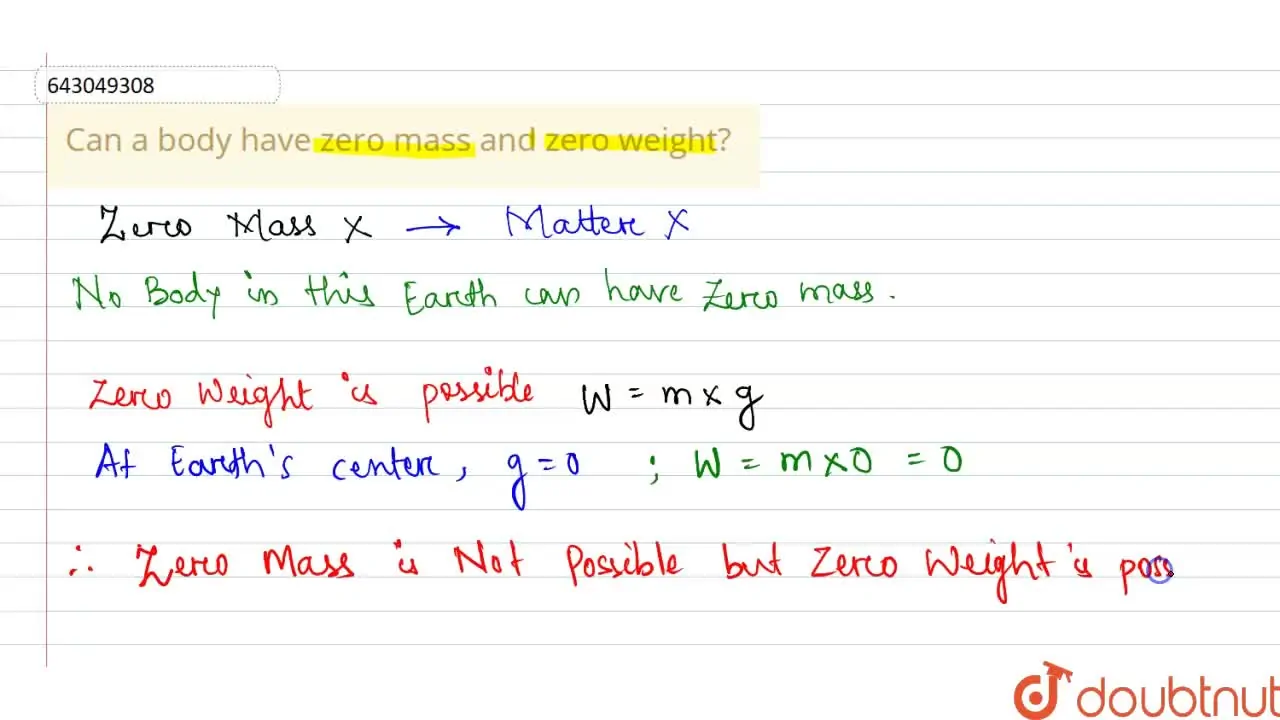 643049308
Can a body have zero mass and zero weight?
Zero Mass X → Matter X
No Body in this Earth can have Zero mass.
Zero Weight is possible W = m x g
At Earth's center, g = 0 ; W = m x 0 = 0
∴ Zero Mass is Not Possible but Zero Weight is poss
doubtnut